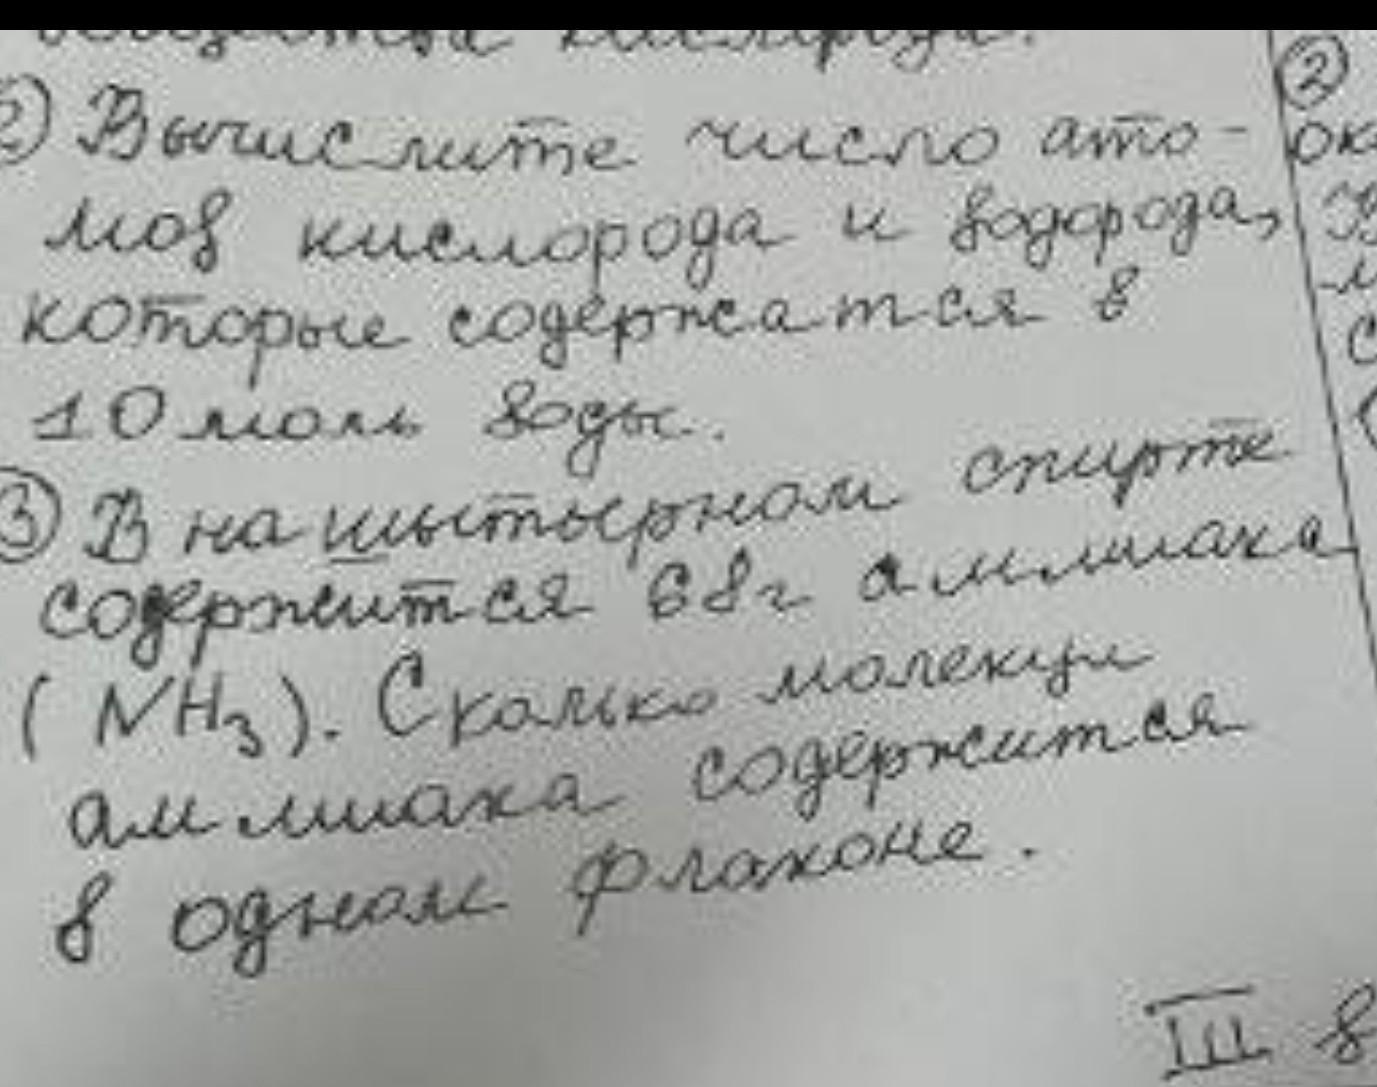 кислорода.
2) Вычислите число ато-
мов кислорода и водорода,
которые содержатся в
10 моль воды.
3) В нашытырном спирте
содержится 68г аммиака
(NH₃). Сколько молекул
аммиака содержится
в одном флаконе.
2
III в